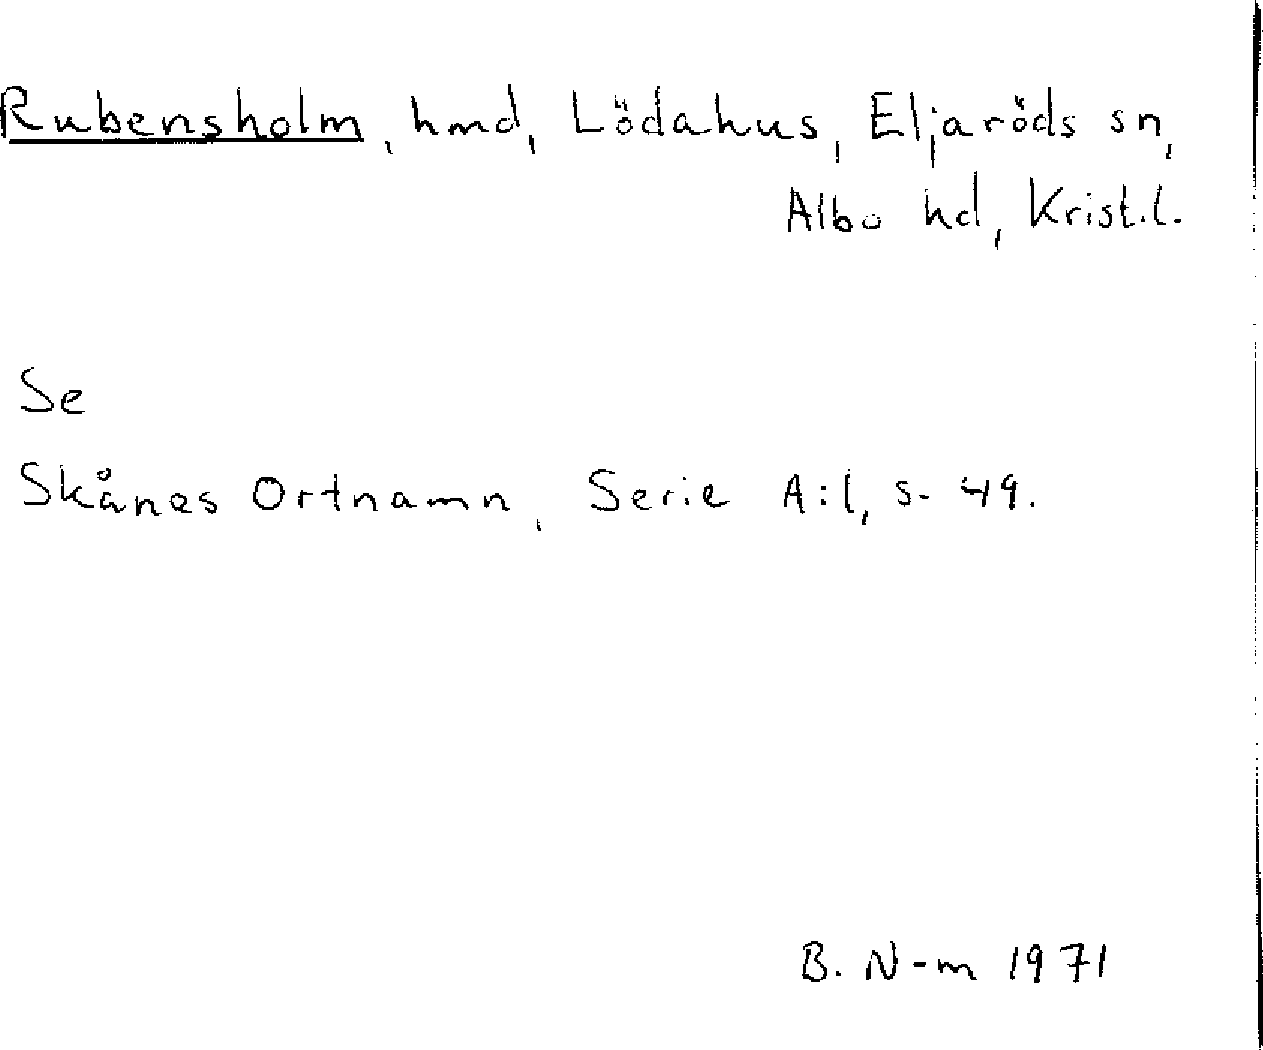 Rubensholm, hmd, Lödahus, Eljaröds sn,
Albo hd, Krist.l.
Se
Skånes Ortnamn, Serie A:1, s. 49.
B. N-m 1971